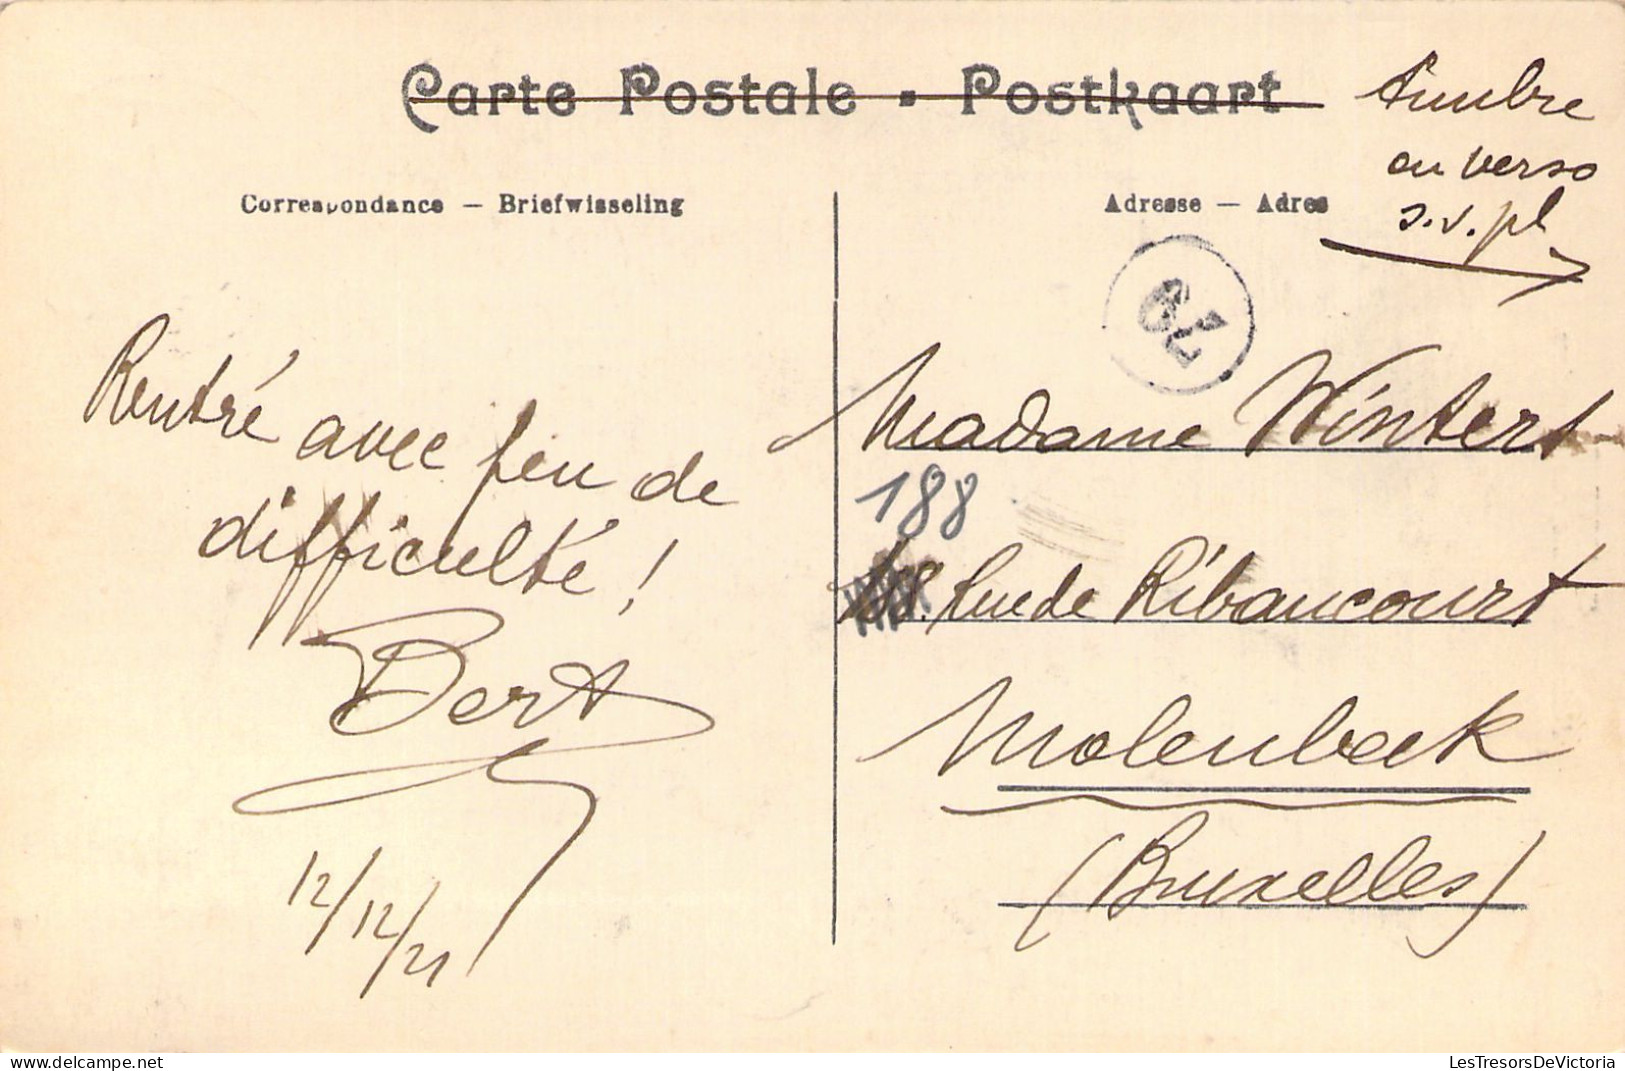 Carte Postale . Postkaart
timbre
au verso
s.v.pl
Correspondance — Briefwisseling
Adresse — Adres
79
Rentré avec peu de
difficulté !
Bert
12/12/21
Madame Winters
188
Rue de Ribaucourt
Molenbeek
(Bruxelles)
LesTresorsDeVictoria